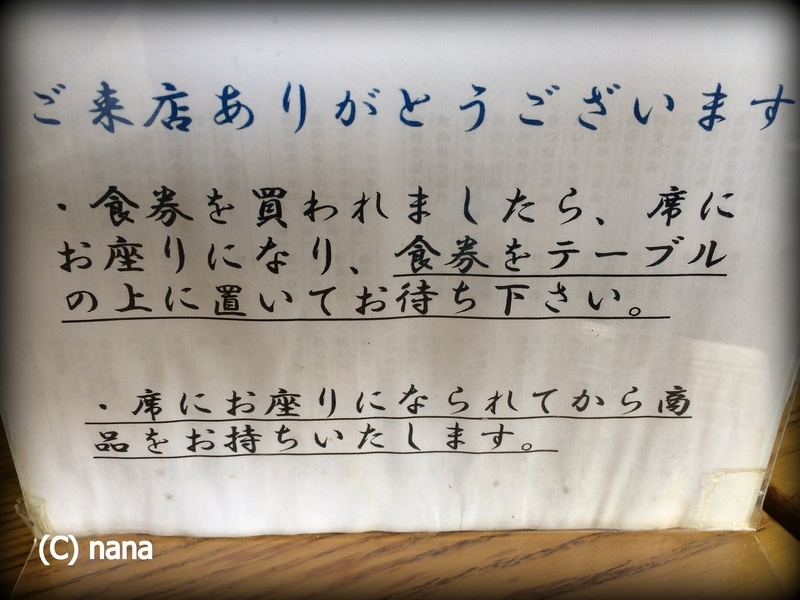 ご来店ありがとうございます
・食券を買われましたら、席に
お座りになり、食券をテーブル
の上に置いてお待ち下さい。
・席にお座りになられてから商
品をお持ちいたします。
(C) nana